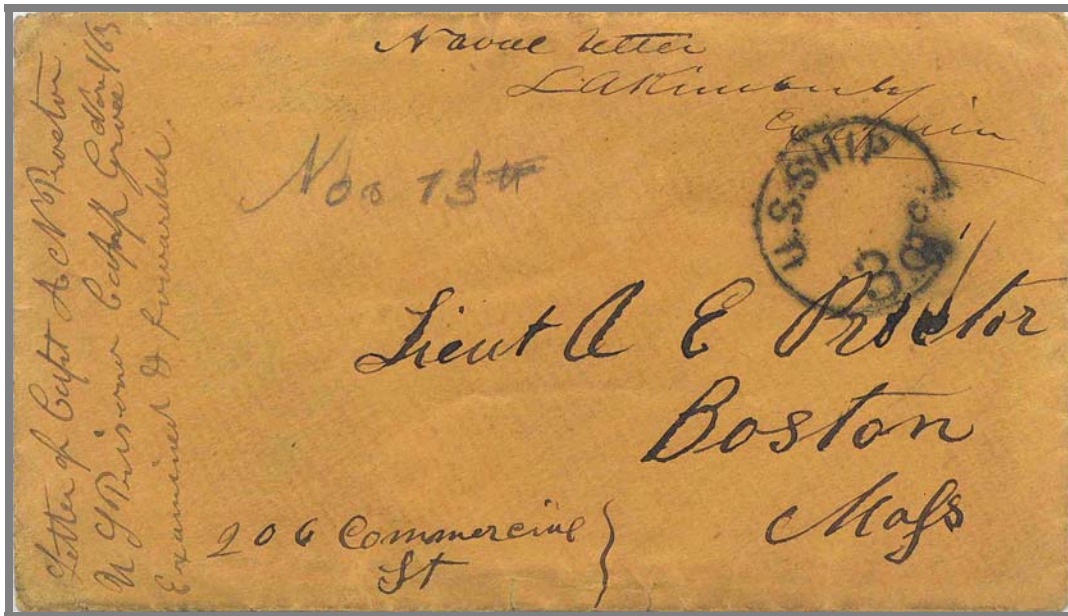 Naval Letter
L A Kimberly
Nov 13th
U.S. SHIP
3 cts
Lieut A E Proctor
Boston
Mass
206 Commercial
St
Letter of Capt A N Procton
U S Prisoner Camp Groce
Examined & forwarded.